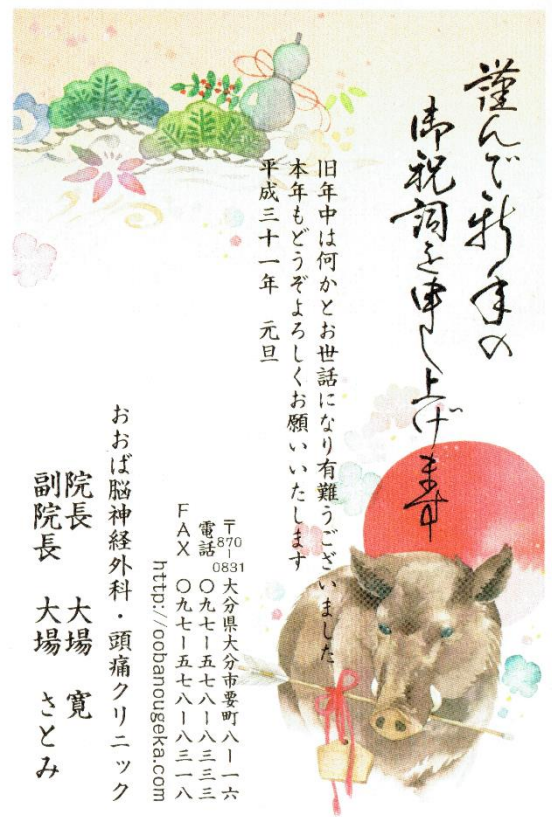 謹んで新年の
御祝詞を申し上げます
旧年中は何かとお世話になり有難うございました
本年もどうぞよろしくお願いいたします
平成三十一年　元旦
〒870-0831 大分県大分市要町八ー一六
電話 〇九七ー五七八ー八三三三
FAX 〇九七ー五七八ー八三一八
http://oobanougeka.com
おおば脳神経外科・頭痛クリニック
院長　大場　寛
副院長　大場　さとみ